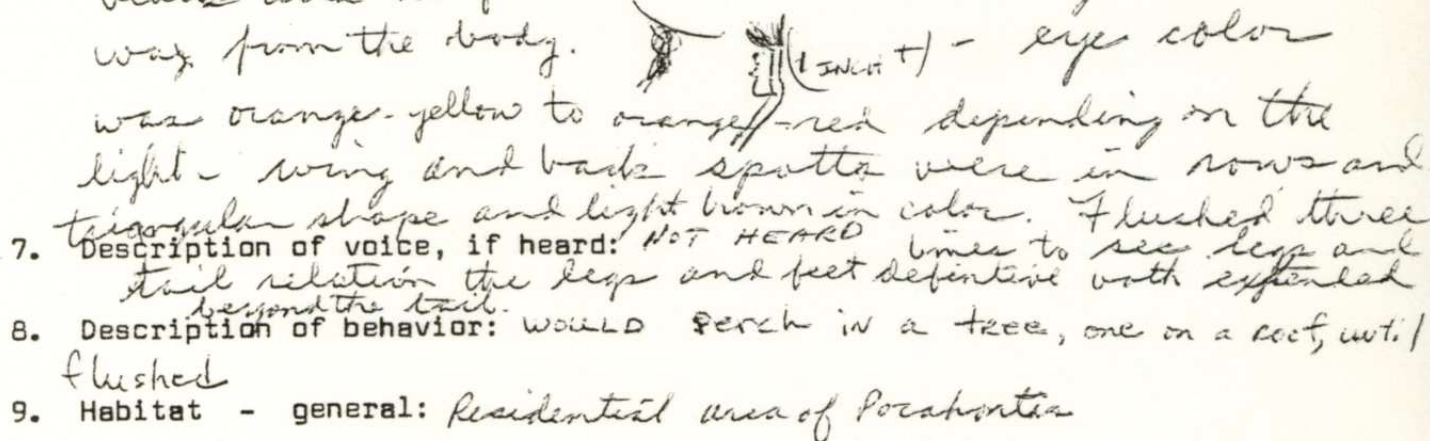 way from the body. (1 INCH +) - eye color
was orange-yellow to orange-red depending on the
light - wing and back spotts were in rows and
triangular shape and light brown in color. Flushed three
7. Description of voice, if heard: NOT HEARD times to see legs and
tail relation the legs and feet defintive both extended
beyond the tail.
8. Description of behavior: WOULD Perch in a tree, one on a roof, until
flushed
9. Habitat - general: Residential area of Pocahontas